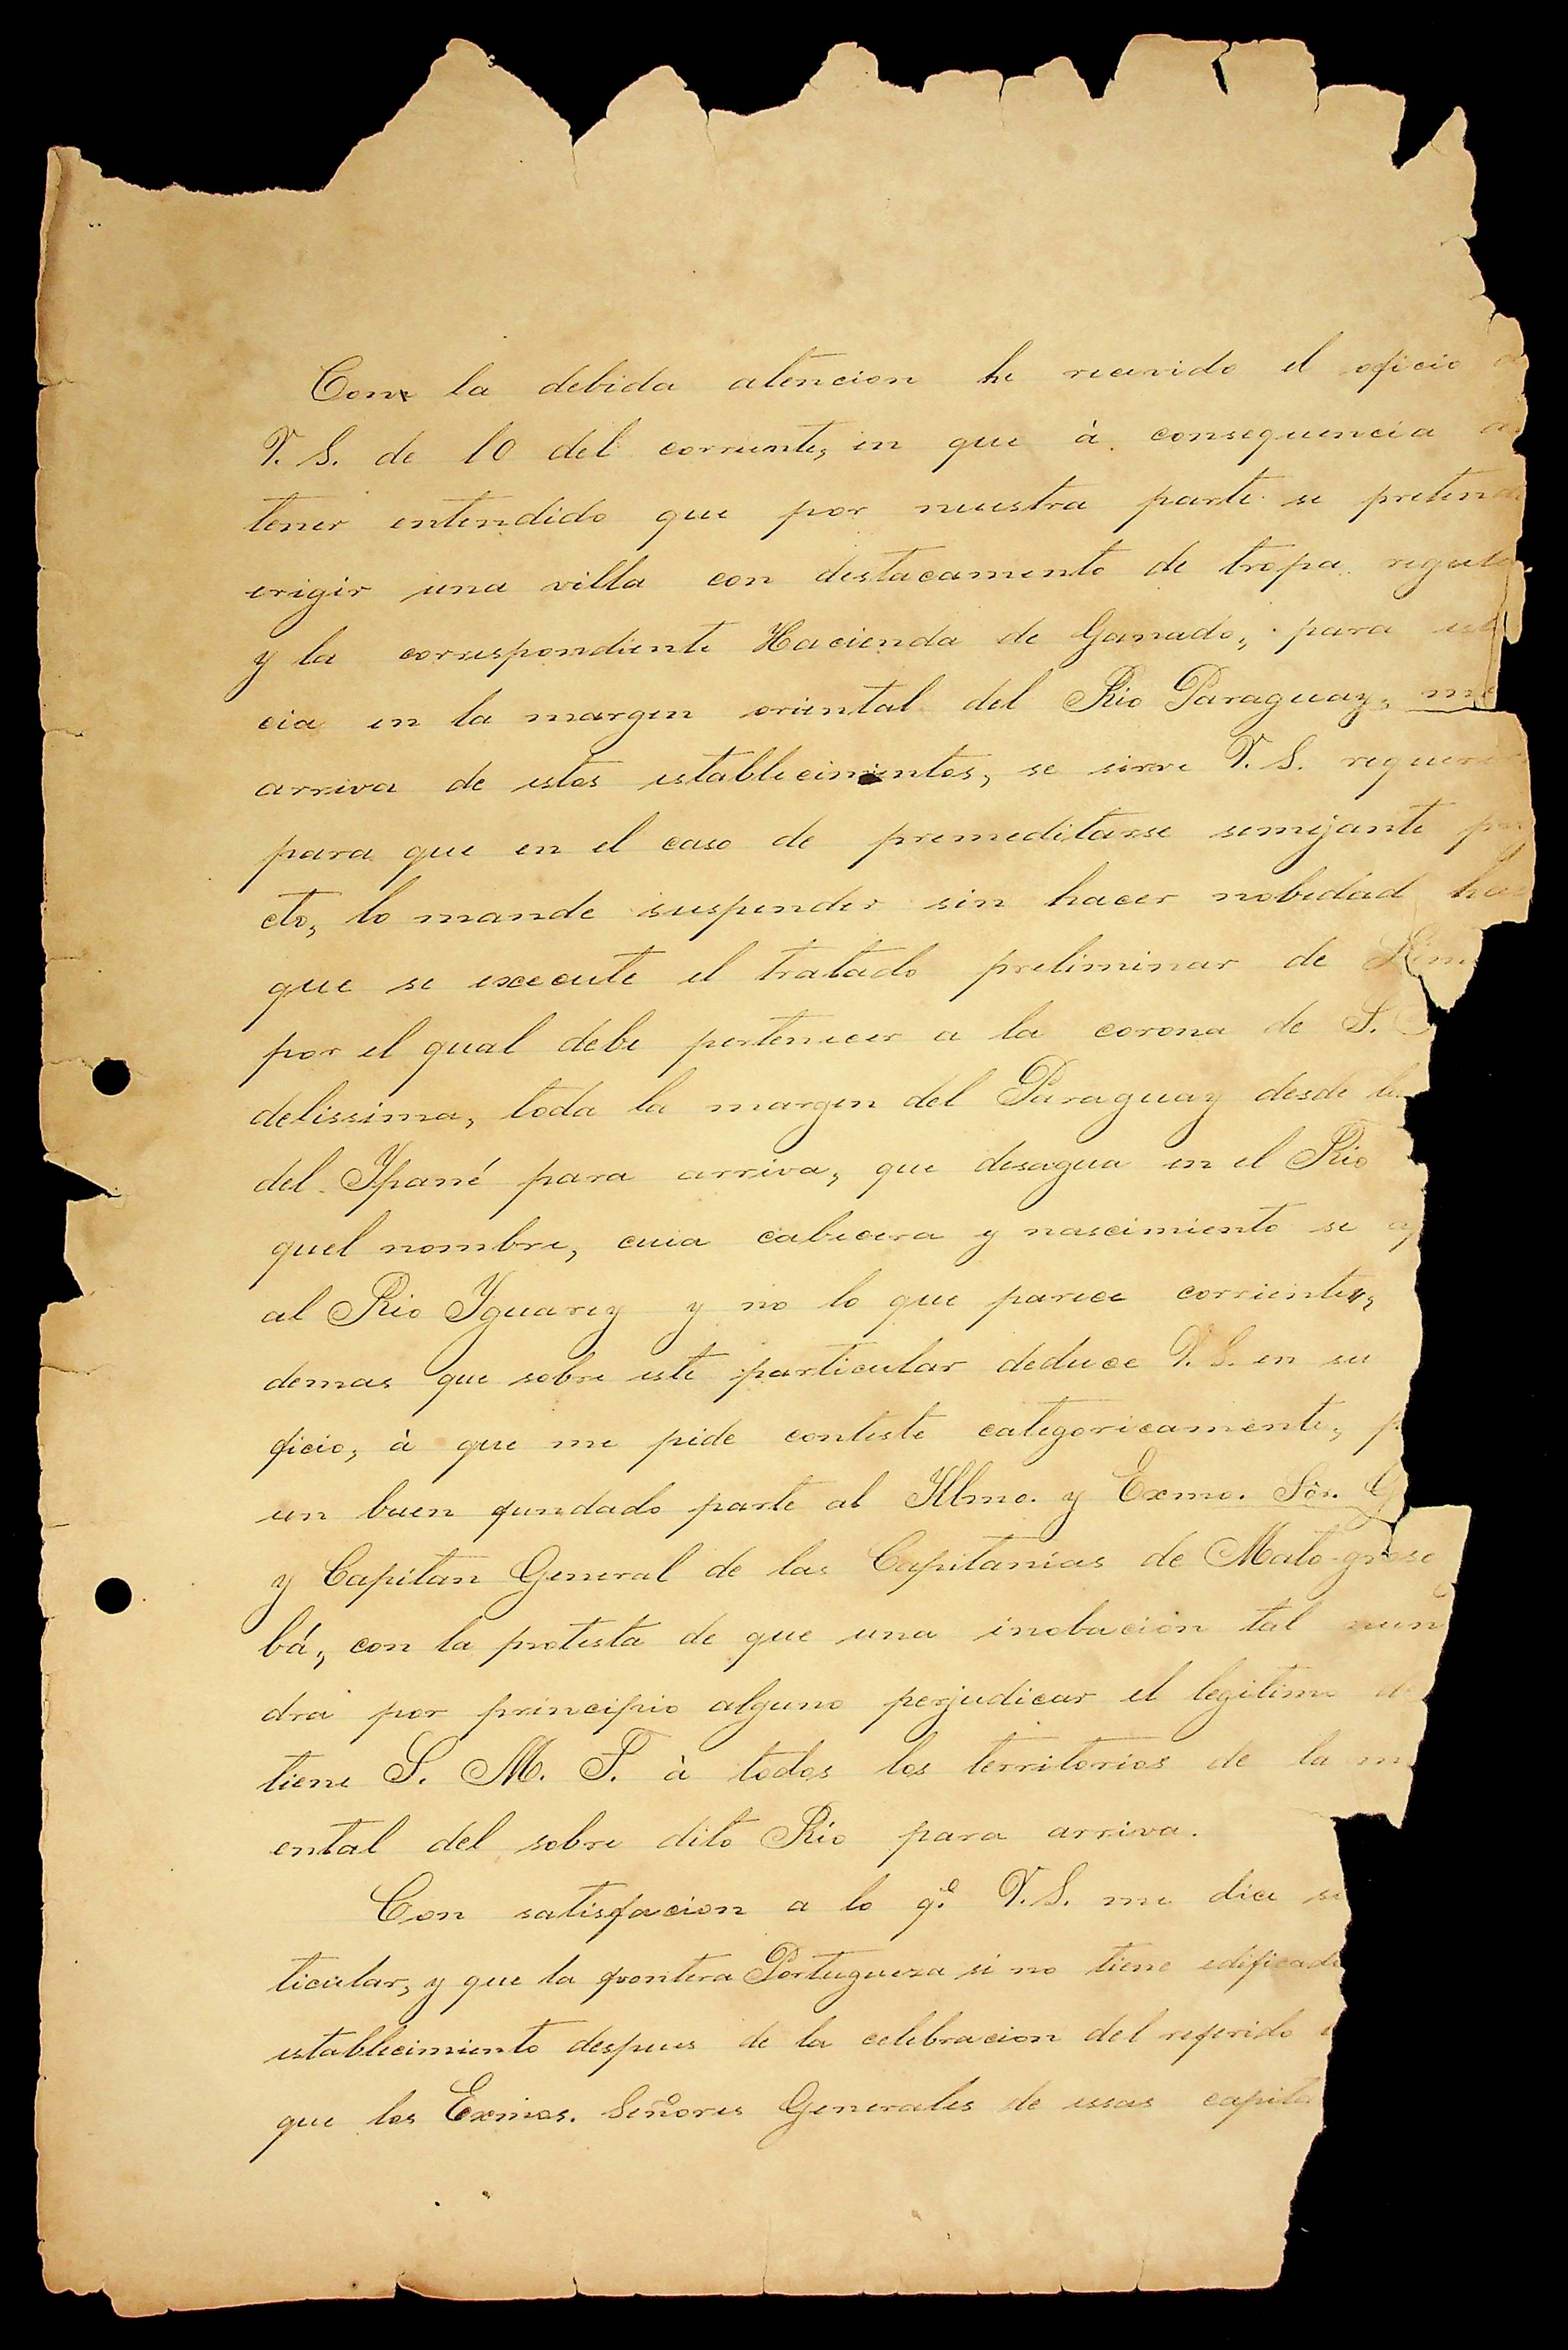 Con la debida atencion he recivido el oficio
V. S. de 10 del corriente, en que à consequencia
tener entendido que por nuestra parte se preten
erigir una villa con destacamento de tropa regul
y la correspondiente Hacienda de Ganado, para est
cia en la margen oriental del Rio Paraguay, m
arriva de estos establecimientos, se sirve V. S. requeri
para que en el caso de premeditarse semejante
cto, lo mande suspender sin hacer nobedad ha
que se execute el tratado preliminar de Lim
por el qual debe pertenecer a la corona de S.
delissima, toda la margen del Paraguay desde
del Ypané para arriva, que desagua en el Rio
quel nombre, cuia cabecera y nascimiento se
al Rio Yguarey y no lo que parece corrientes,
demas que sobre este particular deduce V. S. en su
ficio, à que me pide conteste categoricamente, p
un buen fundado parte al Yllmo. y Exmo. Sòr. G
y Capitan General de las Capitanias de Mato-groso
bá, con la protesta de que una inobacion tal nun
dra por principio alguno perjudicar el legitimo d
tiene S. M. F. à todos los territorios de la m
ental del sobre dito Rio para arriva.
Con satisfacion a lo q.e V. S. me dice s
ticular, y que la frontera Portugueza si no tiene edificad
establecimiento despues de la celebracion del referido
que los Exmos. Señores Generales de essas capita